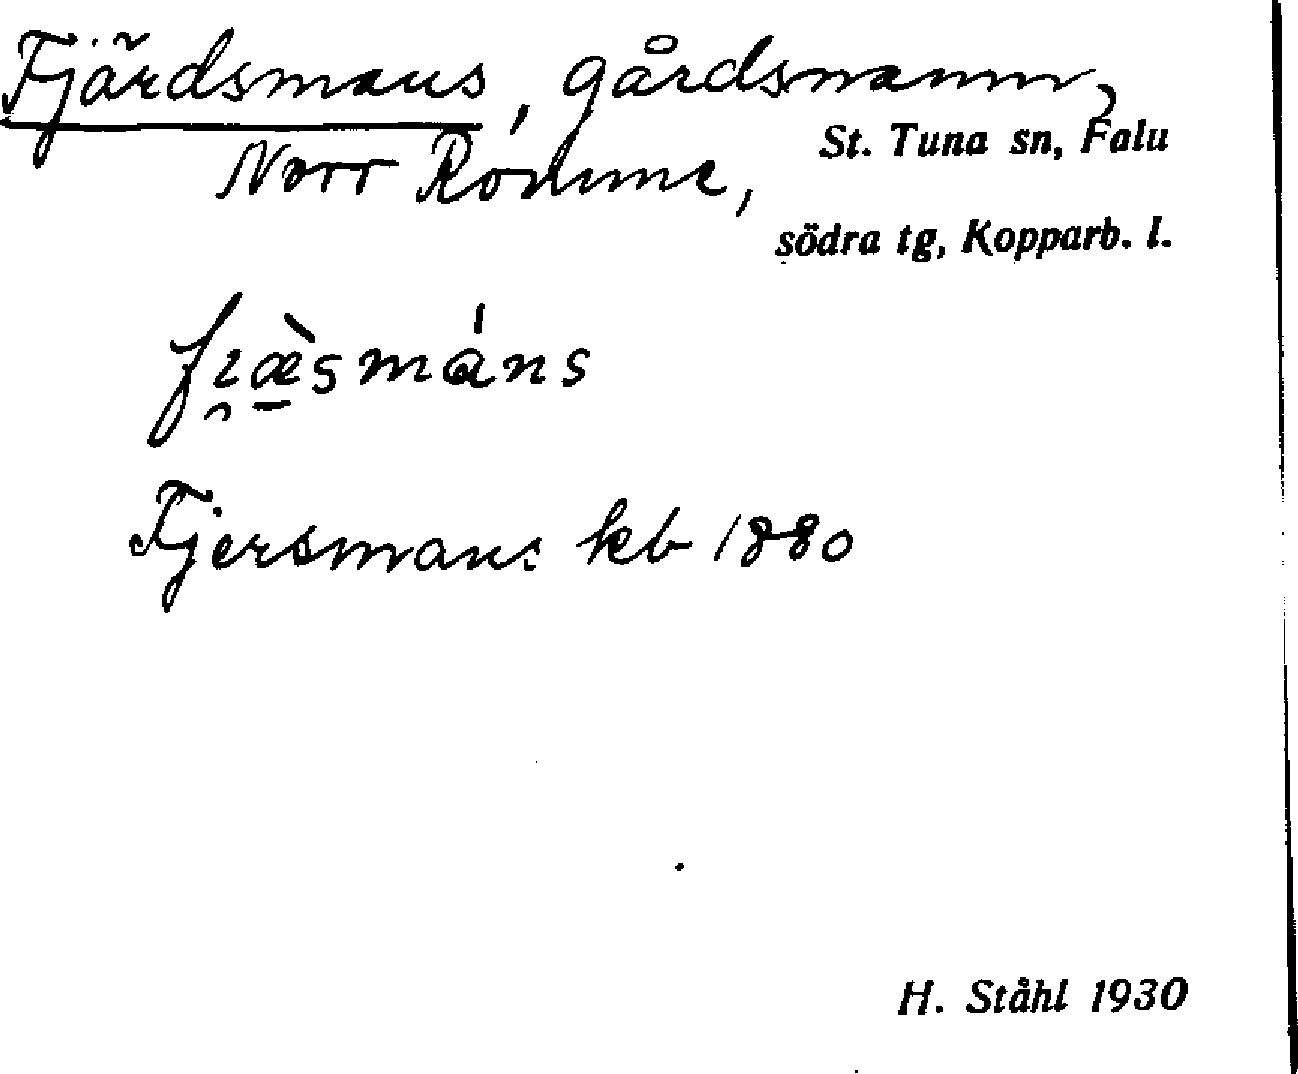 Fjärdsmans, gårdsnamn,
Norr Romme,
St. Tuna sn, Falu
södra tg, Kopparb. l.
Fjersmans kb 1880
H. Ståhl 1930